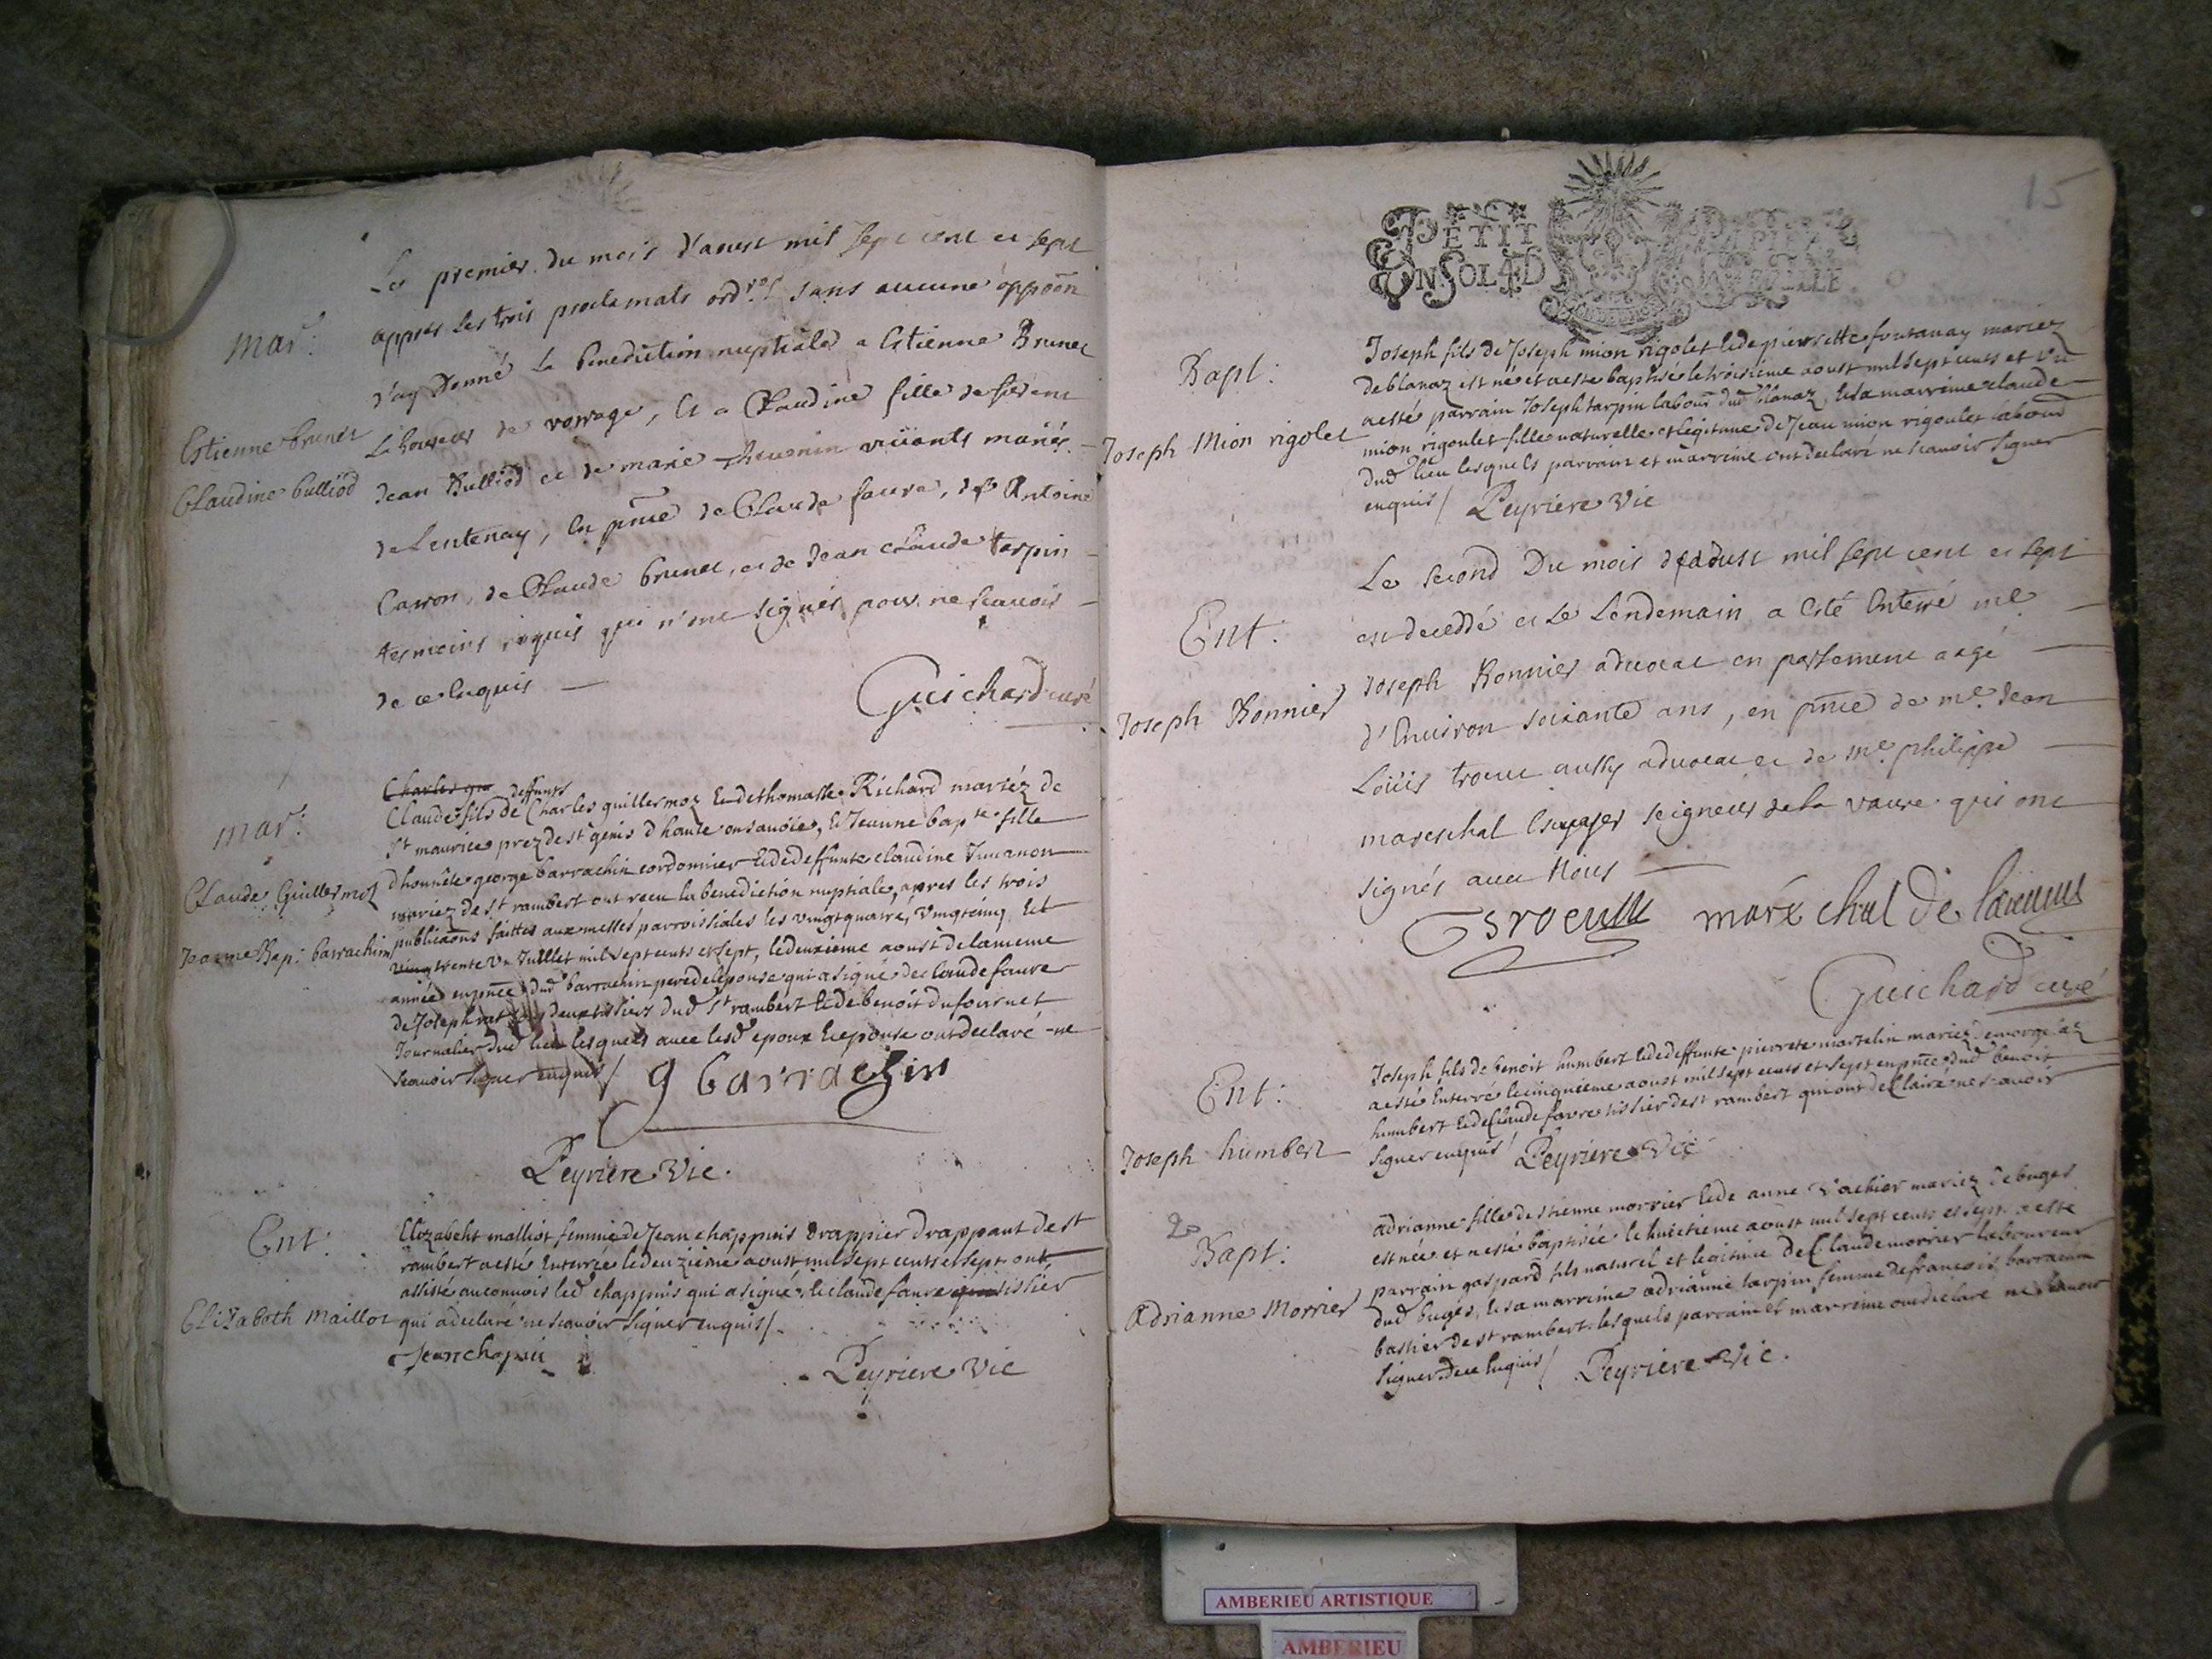 Le premier du mois d'aoust mil sept cent et sept
appres les trois proclamats ord.res sans aucune oppoõn
j'ay donné la benediction nuptiale a Estienne Brunet
laboureur de vorage, et a Claudine fille de
Jean Bulliod et de marie thevenin vivants mariés
de Lentenay, en pñce de Claude faure, de Antoine
Carron, de Claude brunet, et de Jean Claude tarpin
tesmoins requis qui n'ont signés pour ne scavoir
de ce enquis
Guichard curé
mar:
Estienne brunet
Claudine bulliod
Charles gui deffunts
Claude fils de Charles guillermoz et de thomasse Richard mariéz de
st maurice prez de st genis d haute en savoie, et Jeanne bap.te fille
d honnête george barrachin cordonnier et de deffunte claudine
mariez de st rambert ont receu la benediction nuptiale, apres les trois
publicaõns faittes aux messes parroissiales les vingt quatre, vingt cinq, et
ving trente un Juillet mil sept cents et sept, le deuxieme aoust de la meme
année en pñce dud barrachin pere de l'epouse qui a signé de claude faure
de Joseph deux tissiers dud st rambert et de benoit dufournet
Journalier dud lieu lesquels avec lesd epoux et epouse ont declaré ne
scavoir signer enquis /
g barrachin
Peyriere Vic.
mar:
Claude Guillermoz
Jeanne Bap: barrachin
Elizabeht malliot femme de Jean chappuis drappier drappant de st
rambert a esté enterrée le deuzieme aoust mil sept cents et sept ont
assisté au convois led chappuis qui a signé, et claude faure qui tissier
qui a declaré ne scavoir signer enquis /.
Jean chapui
Peyriere Vic
Ent:
Elizabeth Maillot
15
PETIT PAPIER
UN SOL 4 D LA FEUILLE
Joseph fils de Joseph mion rigolet et de pierrette fontanay mariez
de blanaz est né et a esté baptisé le troisieme aoust mil sept cents et
a esté parrain Joseph tarpin labour dud blanaz, et sa marreine claude
mion rigoulet fille naturelle et legitime de Jean mion rigoulet labour
dud lieu lesquels parrain et marreine ont declaré ne scavoir signer
enquis / Peyriere Vic
Bapt:
Joseph Mion rigolet
Le second Du mois d'aoust mil sept cent et sept
est deceddé et le Lendemain a esté enterré m.e
Joseph Bonnier advocat en parlement aagé
d'environ soixante ans, en pñce de m.e Jean
Loüis trocu aussy advocat et de m.e philippe
mareschal escuyer seigneur de la vavre qui ont
signés avec Nous
mareschal de
Guichard curé
Ent:
Joseph Bonnier
Joseph fils de benoit humbert et de deffunte pierrete martelin mariez
a esté enterré le cinquieme aoust mil sept cents et sept en pñce dud benoit
humbert et de Claude favre tissier de st rambert qui ont declairé ne scavoir
signer enquis / Peyriere Vic
Ent:
Joseph humbert
adrianne fille de stienne morrier et de anne vachier mariez de buges
est née et a esté baptisée le huictieme aoust mil sept cents et sept a esté
parrain gaspard fils naturel et legitime de Claude morrier laboureur
dud buges, et sa marreine adrianne tarpin femme de francois
bastier de st rambert lesquels parrain et marreine ont declaré ne scavoir
signer de ce enquis / Peyriere Vic.
Bapt:
Adrianne Morrier
AMBERIEU ARTISTIQUE
AMBERIEU